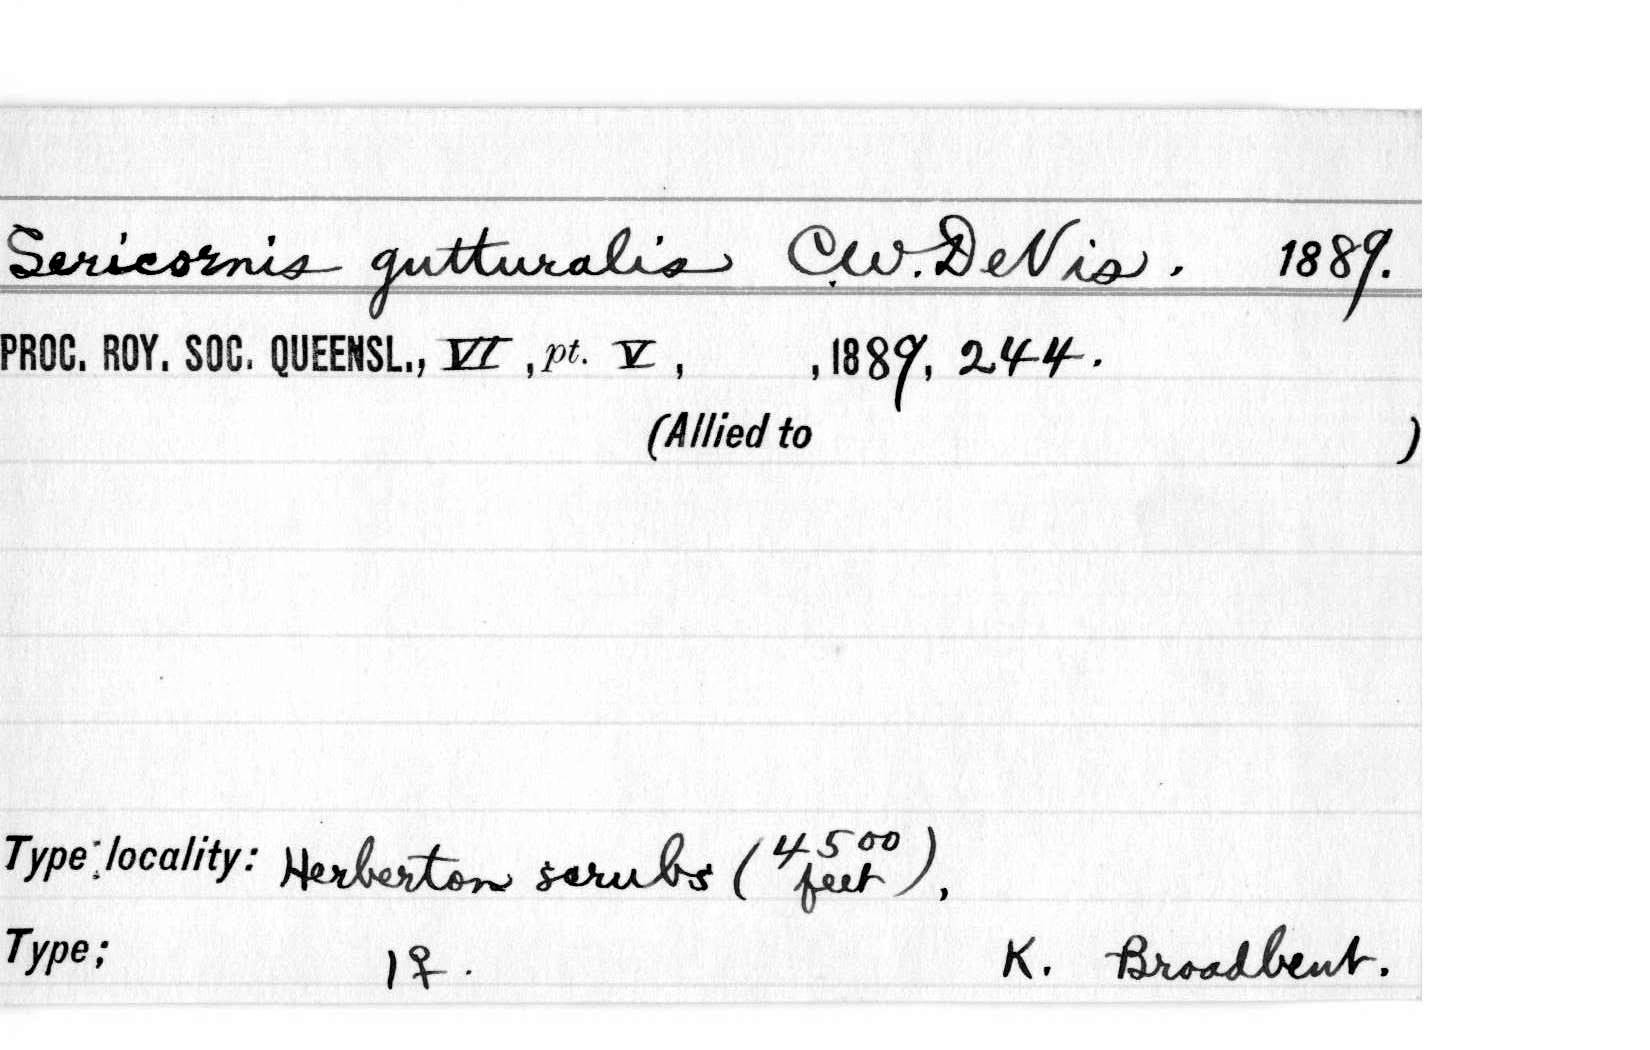 Sericornis gutturalis C.W. DeVis. 1889.
PROC. ROY. SOC. QUEENSL., VI, pt. V, , 1889, 244.
(Allied to )
Type locality: Herberton scrubs (4500 feet),
Type; 1♀. K. Broadbent.